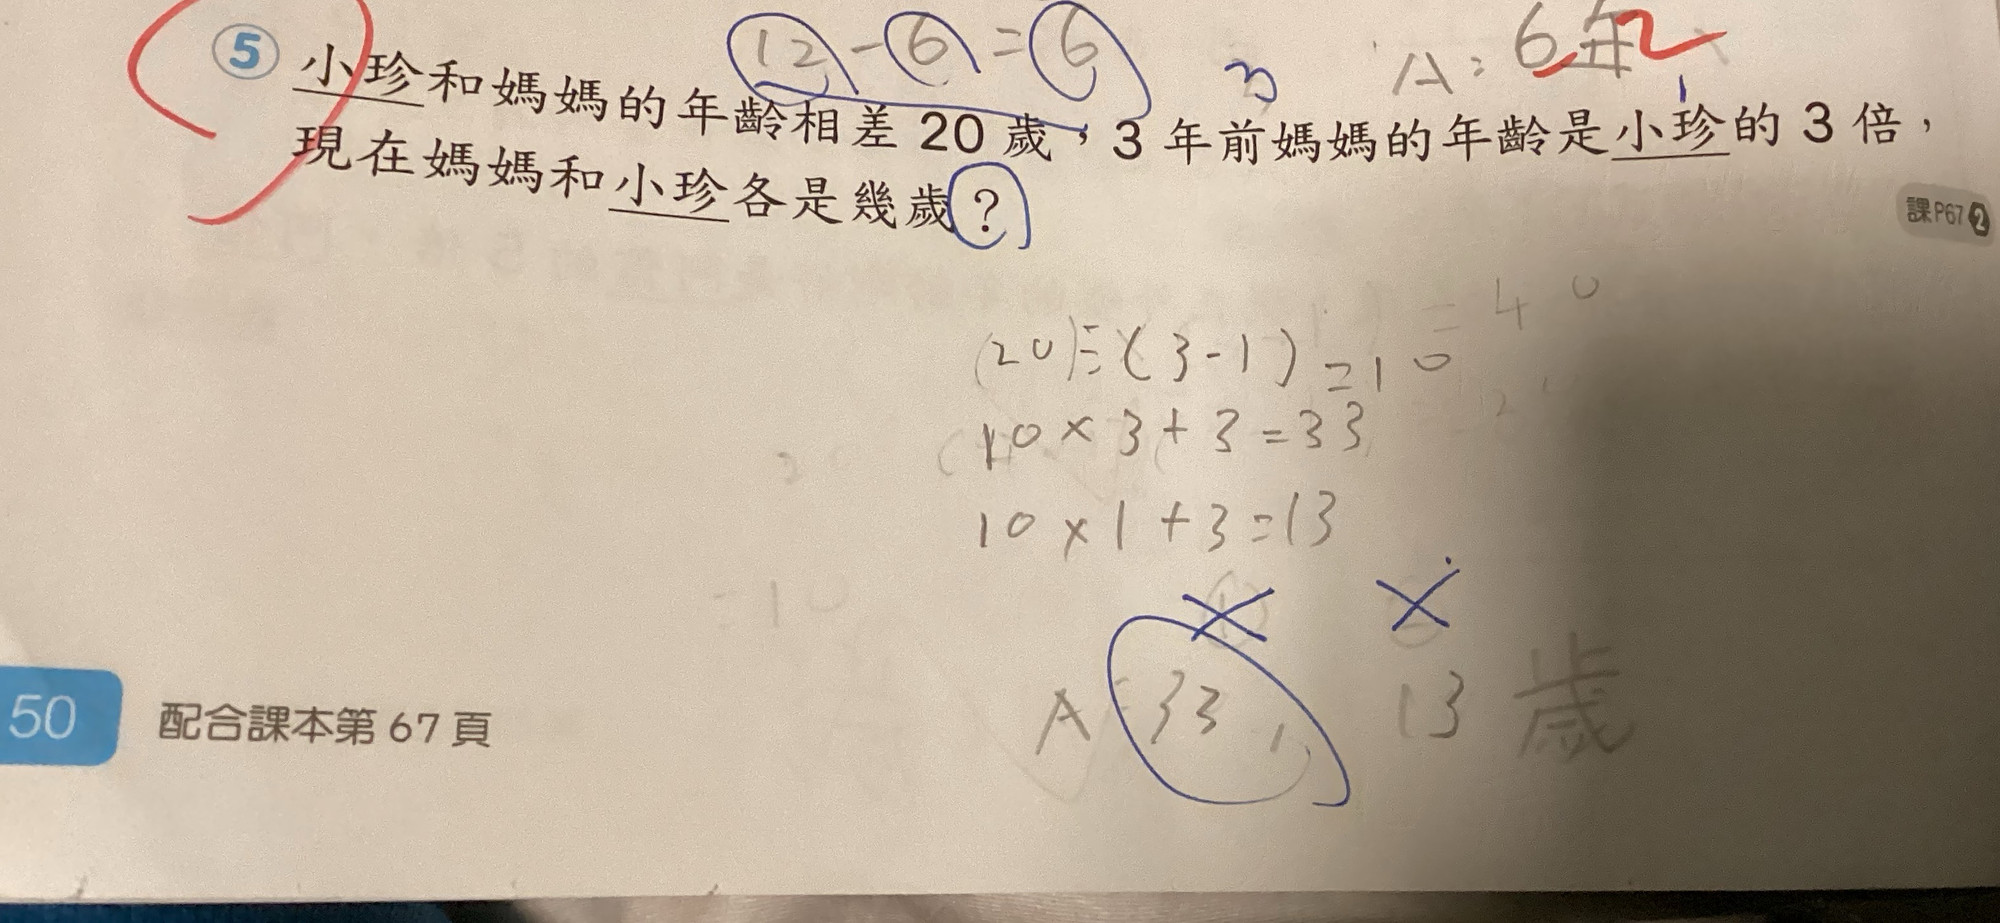 12 - 6 = 6
A: 6年
⑤ 小珍和媽媽的年齡相差 20 歲，3 年前媽媽的年齡是小珍的 3 倍，
現在媽媽和小珍各是幾歲？
課P67 ❷
(20)÷(3-1)=10
10×3+3=33
10×1+3=13
A: 33, 13 歲
50 配合課本第 67 頁